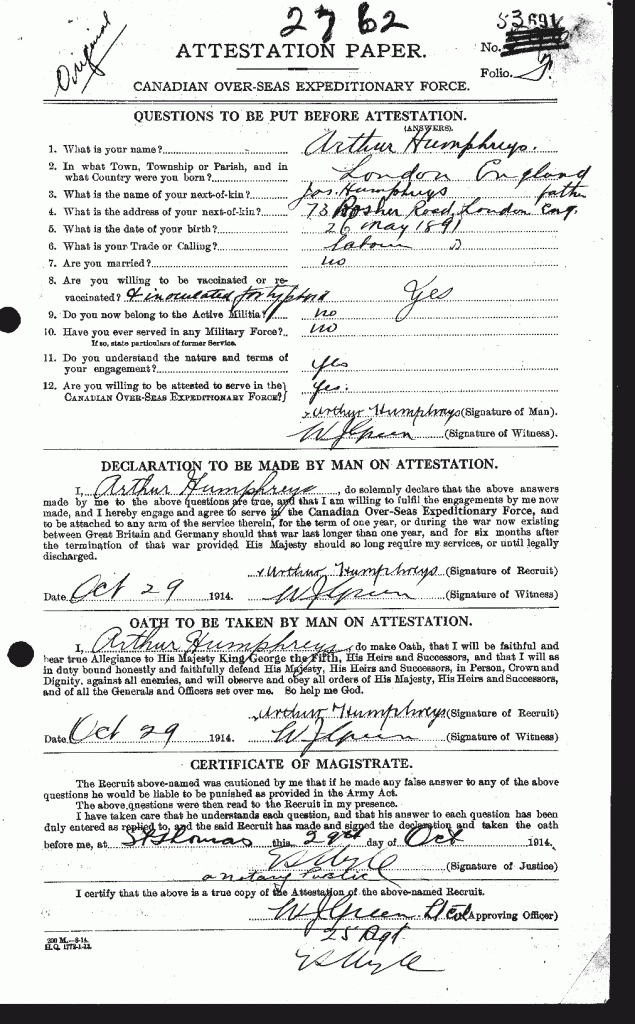 Original
2762
53691
ATTESTATION PAPER.
No.
Folio.
CANADIAN OVER-SEAS EXPEDITIONARY FORCE.
QUESTIONS TO BE PUT BEFORE ATTESTATION.
(ANSWERS).
1. What is your name? Arthur Humphreys.
2. In what Town, Township or Parish, and in
what Country were you born? London England
3. What is the name of your next-of-kin? Jos. Humphreys father
4. What is the address of your next-of-kin? 73 Rosher Road, London Eng.
5. What is the date of your birth? 26 May 1891
6. What is your Trade or Calling? labour
7. Are you married? no
8. Are you willing to be vaccinated or re-
vaccinated? & inoculated for typhoid Yes
9. Do you now belong to the Active Militia? no
10. Have you ever served in any Military Force? no
If so, state particulars of former Service.
11. Do you understand the nature and terms of
your engagement? yes
12. Are you willing to be attested to serve in the
CANADIAN OVER-SEAS EXPEDITIONARY FORCE? yes.
Arthur Humphreys (Signature of Man).
W J Green (Signature of Witness).
DECLARATION TO BE MADE BY MAN ON ATTESTATION.
I, Arthur Humphreys, do solemnly declare that the above answers
made by me to the above questions are true, and that I am willing to fulfil the engagements by me now
made, and I hereby engage and agree to serve in the Canadian Over-Seas Expeditionary Force, and
to be attached to any arm of the service therein, for the term of one year, or during the war now existing
between Great Britain and Germany should that war last longer than one year, and for six months after
the termination of that war provided His Majesty should so long require my services, or until legally
discharged.
Arthur Humphreys (Signature of Recruit)
Date Oct 29 1914. W J Green (Signature of Witness)
OATH TO BE TAKEN BY MAN ON ATTESTATION.
I, Arthur Humphreys, do make Oath, that I will be faithful and
bear true Allegiance to His Majesty King George the Fifth, His Heirs and Successors, and that I will as
in duty bound honestly and faithfully defend His Majesty, His Heirs and Successors, in Person, Crown and
Dignity, against all enemies, and will observe and obey all orders of His Majesty, His Heirs and Successors,
and of all the Generals and Officers set over me. So help me God.
Arthur Humphreys (Signature of Recruit)
Date Oct 29 1914. W J Green (Signature of Witness)
CERTIFICATE OF MAGISTRATE.
The Recruit above-named was cautioned by me that if he made any false answer to any of the above
questions he would be liable to be punished as provided in the Army Act.
The above questions were then read to the Recruit in my presence.
I have taken care that he understands each question, and that his answer to each question has been
duly entered as replied to, and the said Recruit has made and signed the declaration and taken the oath
before me, at St Thomas this 29th day of Oct 1914.
(Signature of Justice)
a notary Public
I certify that the above is a true copy of the Attestation of the above-named Recruit.
W J Green (Approving Officer)
25 Regt
200 M.—8-14.
H.Q. 1772-1-13.